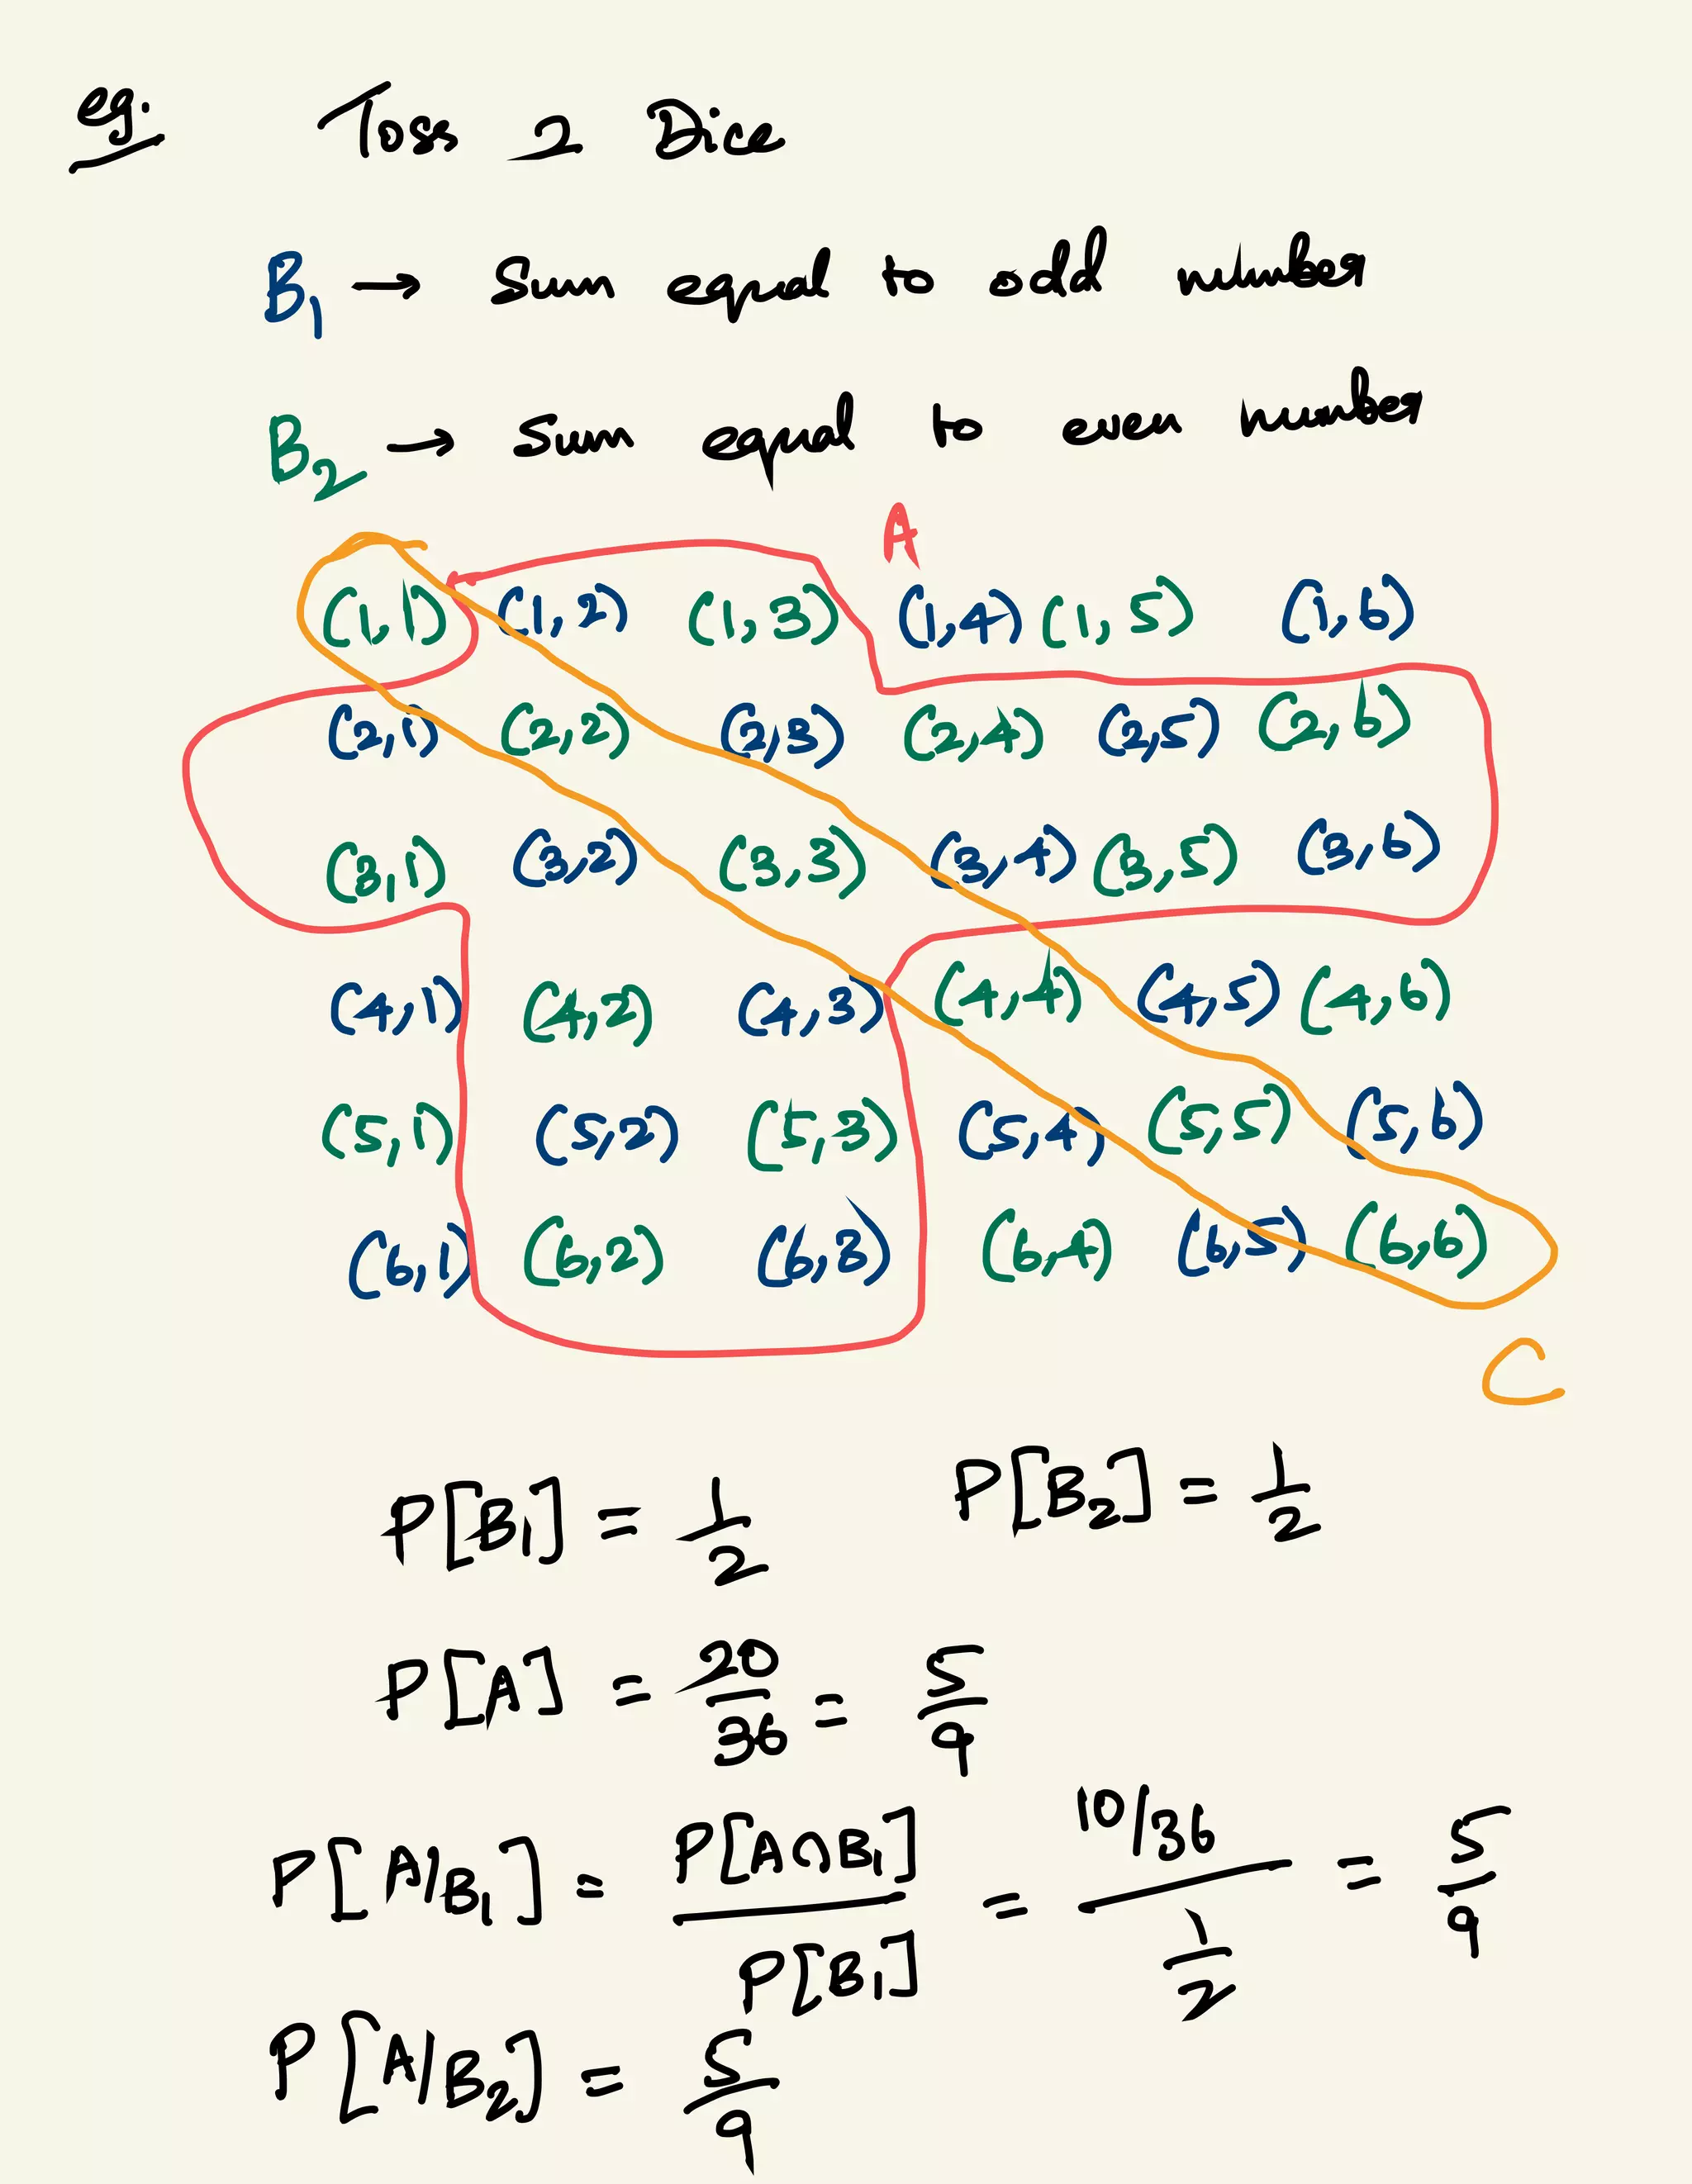 eg: Toss 2 Dice
B₁ → Sum equal to odd number
B₂ → Sum equal to even number
A
(1,1) (1,2) (1,3) (1,4) (1,5) (1,6)
(2,1) (2,2) (2,3) (2,4) (2,5) (2,6)
(3,1) (3,2) (3,3) (3,4) (3,5) (3,6)
(4,1) (4,2) (4,3) (4,4) (4,5) (4,6)
(5,1) (5,2) (5,3) (5,4) (5,5) (5,6)
(6,1) (6,2) (6,3) (6,4) (6,5) (6,6)
C
P[B₁] = 1/2 P[B₂] = 1/2
P[A] = 20/36 = 5/9
P[A/B₁] = P[A∩B₁]/P[B₁] = (10/36)/(1/2) = 5/9
P[A/B₂] = 5/9